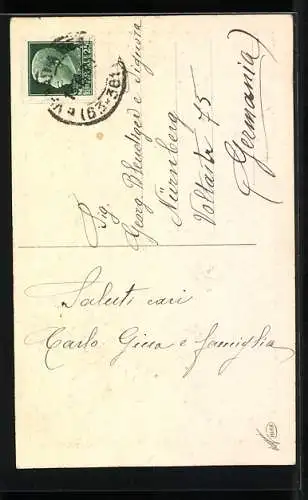 Saluti cari
Carlo Gina e famiglia
Sig.
Georg e Signora
Nürnberg
Voltastr 75
(Germania)